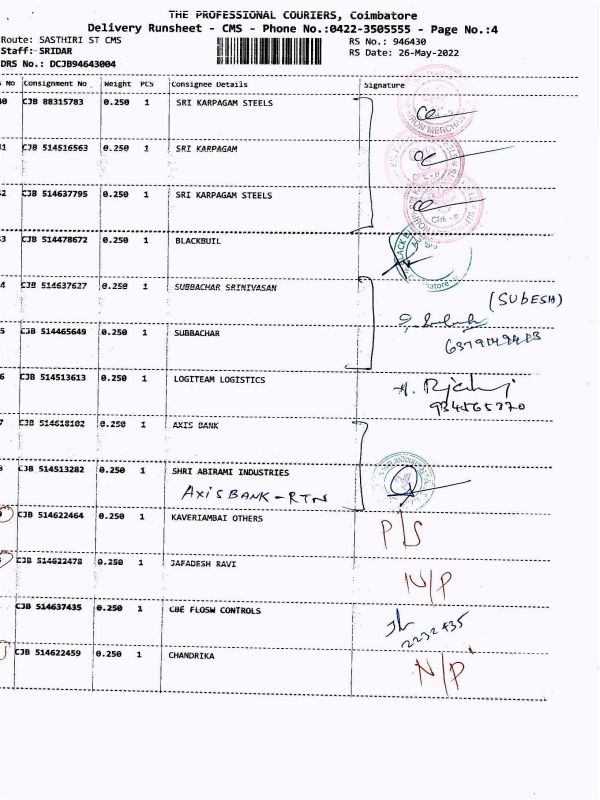 THE PROFESSIONAL COURIERS, Coimbatore
Delivery Runsheet - CMS - Phone No.:0422-3505555 - Page No.:4
Route: SASTHIRI ST CMS
RS No.: 946430
Staff: SRIDAR
RS Date: 26-May-2022
DRS No.: DCJB94643004
No Consignment No Weight PCS Consignee Details Signature
0 CJB 88315783 0.250 1 SRI KARPAGAM STEELS
1 CJB 514516563 0.250 1 SRI KARPAGAM
2 CJB 514637795 0.250 1 SRI KARPAGAM STEELS
3 CJB 514478672 0.250 1 BLACKBUIL
4 CJB 514637627 0.250 1 SUBBACHAR SRINIVASAN
(SUBESH)
5 CJB 514465649 0.250 1 SUBBACHAR
6 CJB 514513613 0.250 1 LOGITEAM LOGISTICS
7 CJB 514618102 0.250 1 AXIS BANK
8 CJB 514513282 0.250 1 SHRI ABIRAMI INDUSTRIES
AXIS BANK - RTN
CJB 514622464 0.250 1 KAVERIAMBAI OTHERS P/S
CJB 514622478 0.250 1 JAFADESH RAVI N/P
CJB 514637435 0.250 1 CBE FLOSW CONTROLS
2232435
CJB 514622459 0.250 1 CHANDRIKA N/P